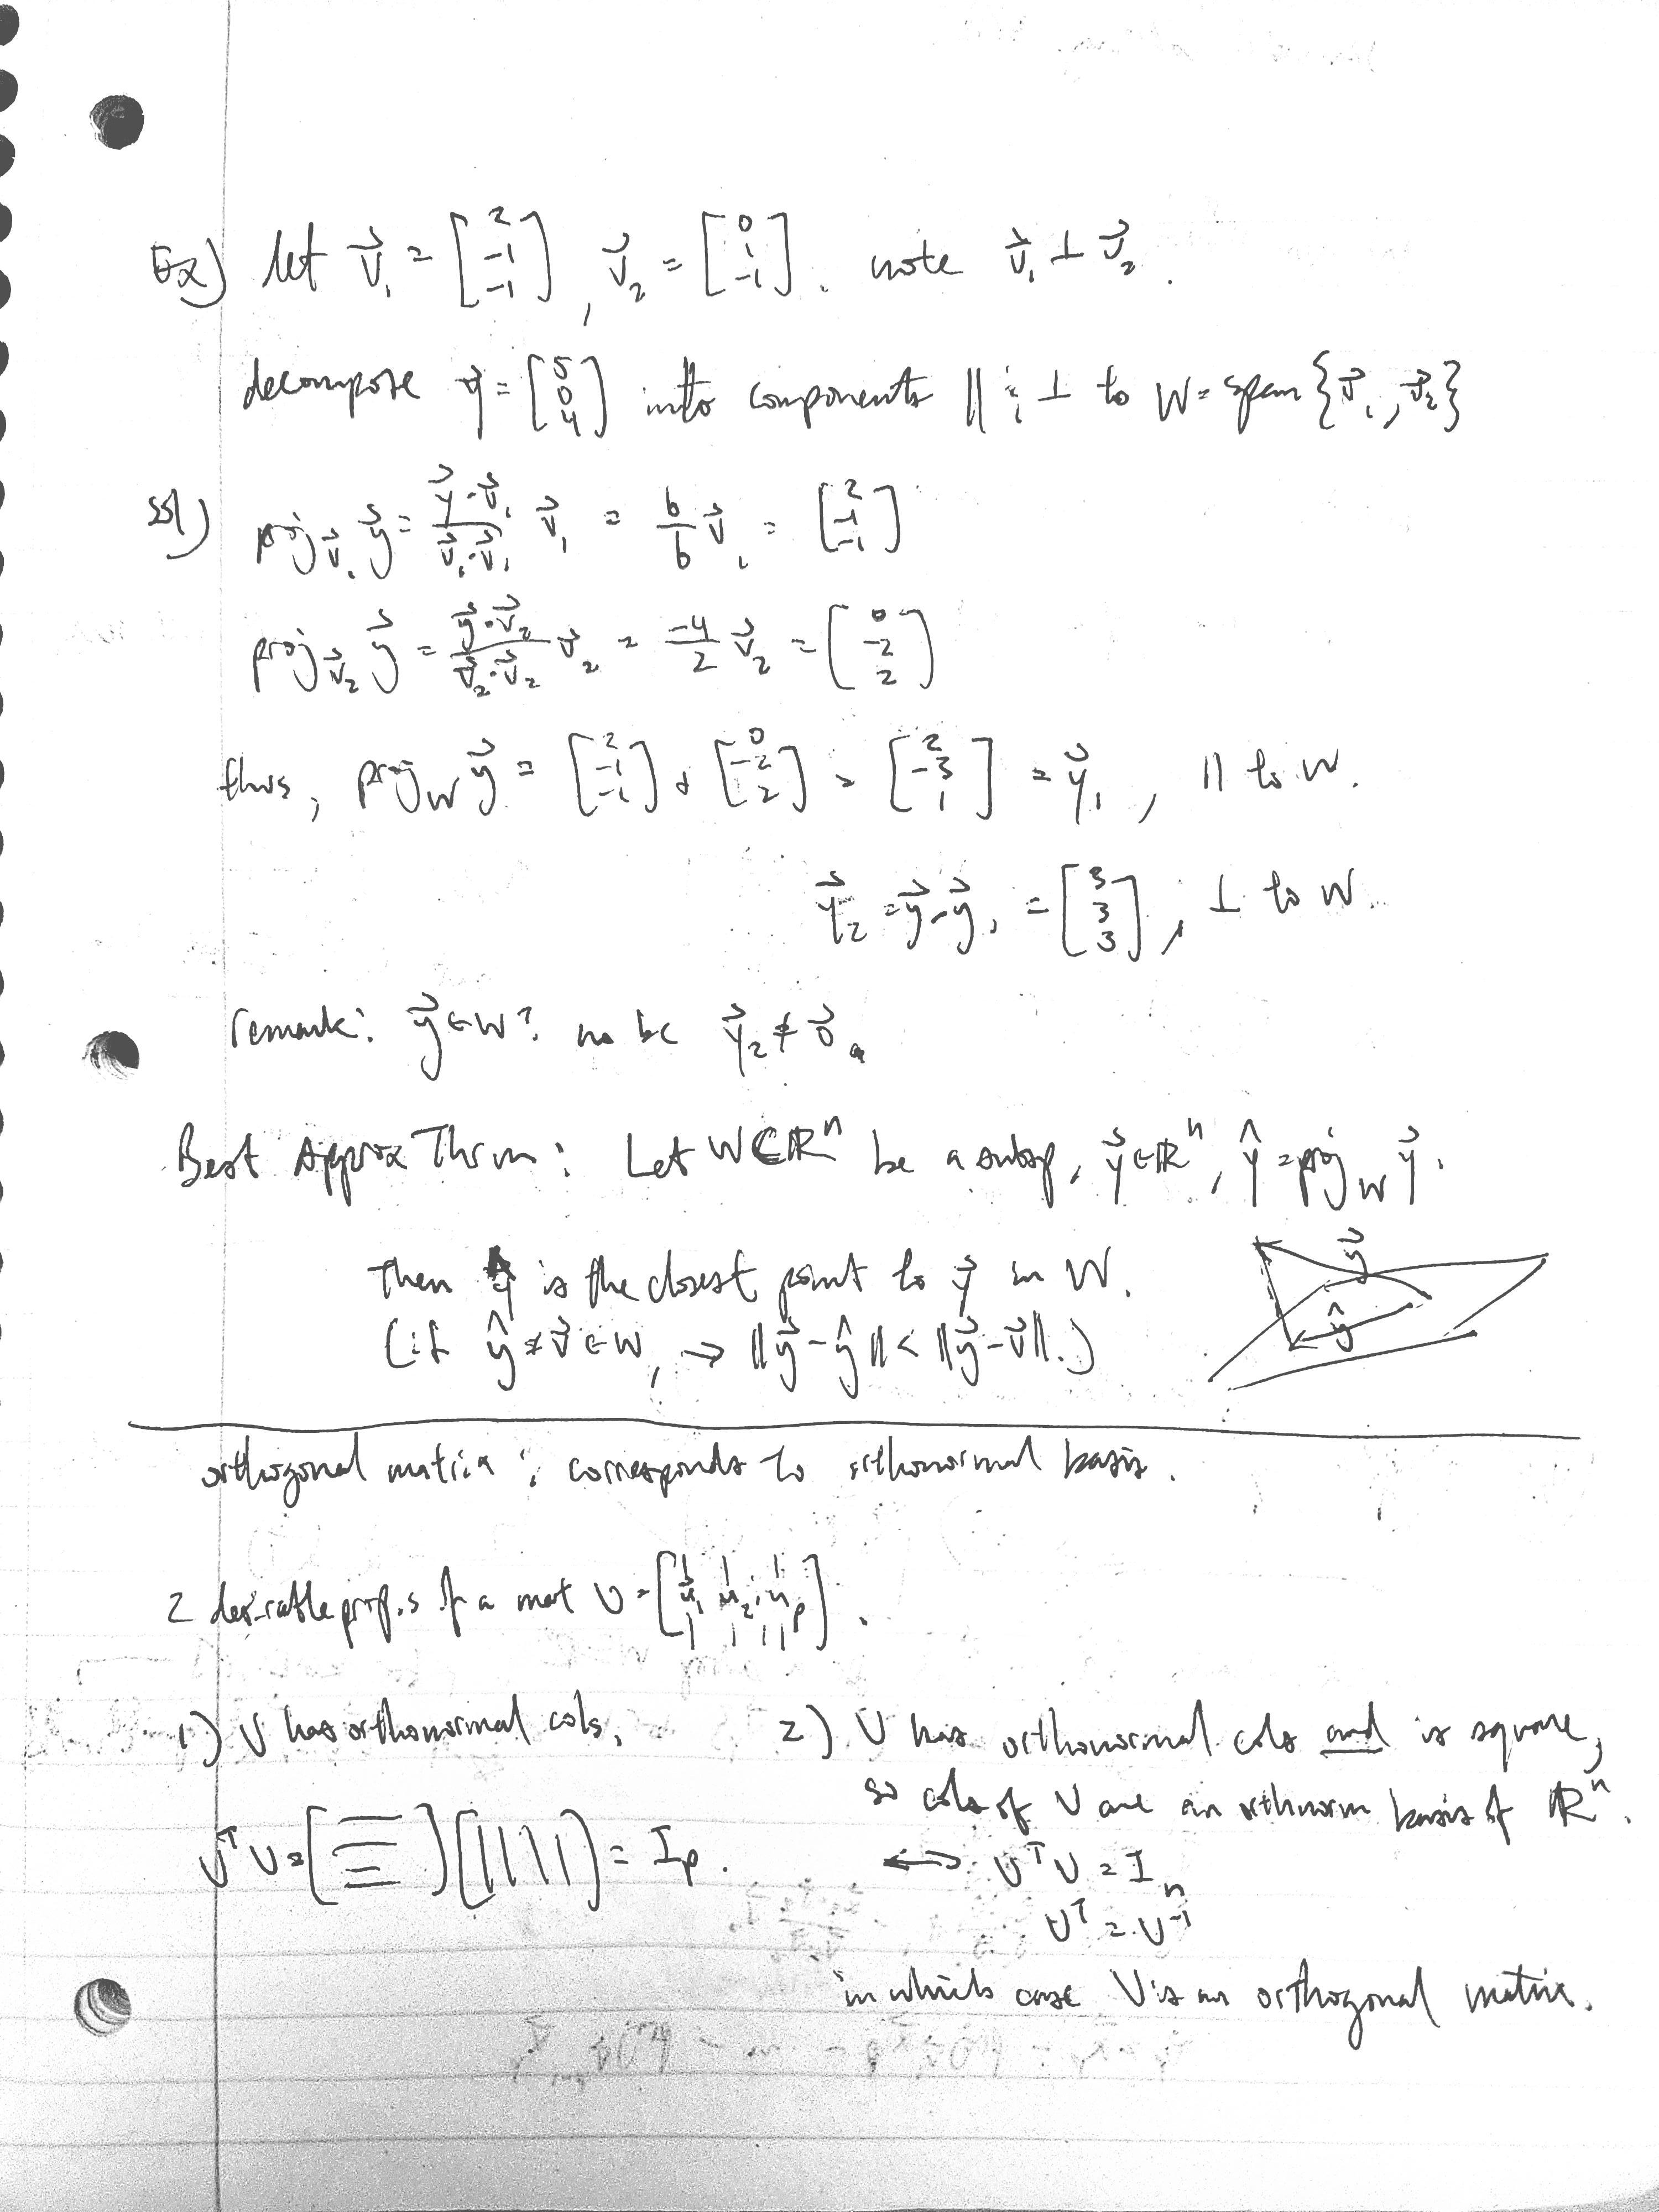 Ex) let v⃗₁ = [2 -1 -1], v⃗₂ = [0 1 -1]. note v⃗₁ ⊥ v⃗₂.
decompose y⃗ = [5 0 4] into components || & ⊥ to W = span {v⃗₁, v⃗₂}
sol) proj_v⃗₁ y⃗ = (y⃗·v⃗₁)/(v⃗₁·v⃗₁) v⃗₁ = 6/6 v⃗₁ = [2 -1 -1]
proj_v⃗₂ y⃗ = (y⃗·v⃗₂)/(v⃗₂·v⃗₂) v⃗₂ = -4/2 v⃗₂ = [0 -2 2]
thus, proj_W y⃗ = [2 -1 -1] + [0 -2 2] = [2 -3 1] = y⃗₁, || to W.
y⃗₂ = y⃗ - y⃗₁ = [3 3 3], ⊥ to W.
remark: y⃗ ∈ W? no bc y⃗₂ ≠ 0⃗.
Best Approx Thrm: Let W⊂ℝⁿ be a subsp, y⃗∈ℝⁿ, ŷ = proj_W y⃗.
Then ŷ is the closest point to y⃗ in W.
(if ŷ ≠ v⃗ ∈ W, → ||y⃗ - ŷ|| < ||y⃗ - v⃗||.)
y⃗
ŷ
orthogonal matrix: corresponds to orthonormal basis.
2 desirable prop.s of a mat U = [u⃗₁ u₂ … u_p].
1) U has orthonormal cols.
UᵀU = [ ] [ ] = I_p.
2) U has orthonormal cols and is square,
so cols of U are an orthnorm basis of ℝⁿ.
↔ UᵀU = I_n
Uᵀ = U⁻¹
in which case U is an orthogonal matrix.